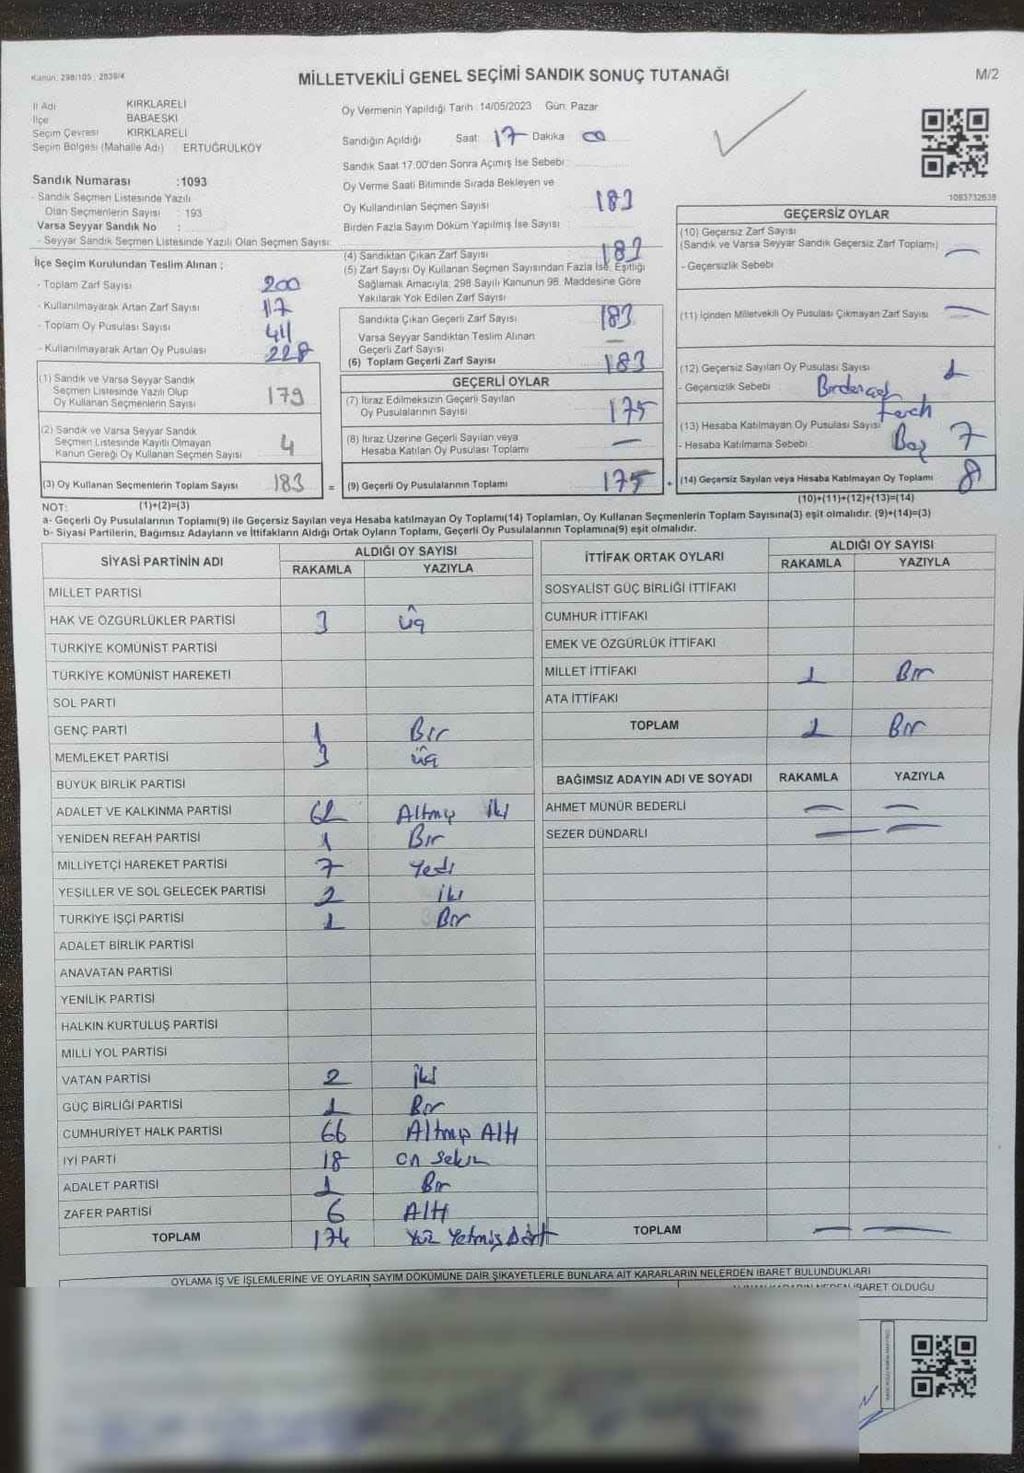 Kanun: 298/105 , 2839/4
MİLLETVEKİLİ GENEL SEÇİMİ SANDIK SONUÇ TUTANAĞI
M/2
İl Adı KIRKLARELİ
İlçe BABAESKİ
Seçim Çevresi KIRKLARELİ
Seçim Bölgesi (Mahalle Adı) : ERTUĞRULKÖY
Sandık Numarası :1093
- Sandık Seçmen Listesinde Yazılı
Olan Seçmenlerin Sayısı : 193
Varsa Seyyar Sandık No :
- Seyyar Sandık Seçmen Listesinde Yazılı Olan Seçmen Sayısı:
İlçe Seçim Kurulundan Teslim Alınan ;
- Toplam Zarf Sayısı 200
- Kullanılmayarak Artan Zarf Sayısı 17
- Toplam Oy Pusulası Sayısı 411
- Kullanılmayarak Artan Oy Pusulası 228
(1) Sandık ve Varsa Seyyar Sandık
Seçmen Listesinde Yazılı Olup
Oy Kullanan Seçmenlerin Sayısı 179
(2) Sandık ve Varsa Seyyar Sandık
Seçmen Listesinde Kayıtlı Olmayan
Kanun Gereği Oy Kullanan Seçmen Sayısı 4
(3) Oy Kullanan Seçmenlerin Toplam Sayısı 183 =
Oy Vermenin Yapıldığı Tarih :14/05/2023 Gün: Pazar
Sandığın Açıldığı Saat: 17 Dakika 00
Sandık Saat 17.00'den Sonra Açımış İse Sebebi :
Oy Verme Saati Bitiminde Sırada Bekleyen ve
Oy Kullandırılan Seçmen Sayısı 183
Birden Fazla Sayım Döküm Yapılmış İse Sayısı :
(4) Sandıktan Çıkan Zarf Sayısı 183
(5) Zarf Sayısı Oy Kullanan Seçmen Sayısından Fazla İse, Eşitliği
Sağlamak Amacıyla, 298 Sayılı Kanunun 98. Maddesine Göre
Yakılarak Yok Edilen Zarf Sayısı
Sandıkta Çıkan Geçerli Zarf Sayısı 183
Varsa Seyyar Sandıktan Teslim Alınan
Geçerli Zarf Sayısı —
(6) Toplam Geçerli Zarf Sayısı 183
GEÇERLİ OYLAR
(7) İtiraz Edilmeksizin Geçerli Sayılan
Oy Pusulalarının Sayısı 175
(8) İtiraz Üzerine Geçerli Sayılan veya
Hesaba Katılan Oy Pusulası Toplamı —
(9) Geçerli Oy Pusulalarının Toplamı 175 +
1093732638
GEÇERSİZ OYLAR
(10) Geçersiz Zarf Sayısı
(Sandık ve Varsa Seyyar Sandık Geçersiz Zarf Toplamı) —
- Geçersizlik Sebebi
(11) İçinden Milletvekili Oy Pusulası Çıkmayan Zarf Sayısı —
(12) Geçersiz Sayılan Oy Pusulası Sayısı 1
- Geçersizlik Sebebi :
(13) Hesaba Katılmayan Oy Pusulası Sayısı 7
- Hesaba Katılmama Sebebi : Boş
(14) Geçersiz Sayılan veya Hesaba Katılmayan Oy Toplamı 8
NOT: (1)+(2)=(3) (10)+(11)+(12)+(13)=(14)
a- Geçerli Oy Pusulalarının Toplamı(9) ile Geçersiz Sayılan veya Hesaba katılmayan Oy Toplamı(14) Toplamları, Oy Kullanan Seçmenlerin Toplam Sayısına(3) eşit olmalıdır. (9)+(14)=(3)
b- Siyasi Partilerin, Bağımsız Adayların ve İttifakların Aldığı Ortak Oyların Toplamı, Geçerli Oy Pusulalarının Toplamına(9) eşit olmalıdır.
SİYASİ PARTİNİN ADI ALDIĞI OY SAYISI
RAKAMLA YAZIYLA
MİLLET PARTİSİ
HAK VE ÖZGÜRLÜKLER PARTİSİ 3 üç
TÜRKİYE KOMÜNİST PARTİSİ
TÜRKİYE KOMÜNİST HAREKETİ
SOL PARTİ
GENÇ PARTİ 1 Bir
MEMLEKET PARTİSİ 3 üç
BÜYÜK BİRLİK PARTİSİ
ADALET VE KALKINMA PARTİSİ 62 Altmış İki
YENİDEN REFAH PARTİSİ 1 Bir
MİLLİYETÇİ HAREKET PARTİSİ 7 Yedi
YEŞİLLER VE SOL GELECEK PARTİSİ 2 İki
TÜRKİYE İŞÇİ PARTİSİ 1 Bir
ADALET BİRLİK PARTİSİ
ANAVATAN PARTİSİ
YENİLİK PARTİSİ
HALKIN KURTULUŞ PARTİSİ
MİLLİ YOL PARTİSİ
VATAN PARTİSİ 2 İki
GÜÇ BİRLİĞİ PARTİSİ 1 Bir
CUMHURİYET HALK PARTİSİ 66 Altmış Altı
İYİ PARTİ 18 On Sekiz
ADALET PARTİSİ 1 Bir
ZAFER PARTİSİ 6 Altı
TOPLAM 174 Yüz Yetmiş Dört
İTTİFAK ORTAK OYLARI ALDIĞI OY SAYISI
RAKAMLA YAZIYLA
SOSYALİST GÜÇ BİRLİĞİ İTTİFAKI
CUMHUR İTTİFAKI
EMEK VE ÖZGÜRLÜK İTTİFAKI
MİLLET İTTİFAKI 1 Bir
ATA İTTİFAKI
TOPLAM 1 Bir
BAĞIMSIZ ADAYIN ADI VE SOYADI RAKAMLA YAZIYLA
AHMET MÜNÜR BEDERLİ — —
SEZER DÜNDARLI — —
TOPLAM — —
OYLAMA İŞ VE İŞLEMLERİNE VE OYLARIN SAYIM DÖKÜMÜNE DAİR ŞİKAYETLERLE BUNLARA AİT KARARLARIN NELERDEN İBARET BULUNDUKLARI
İBARET OLDUĞU